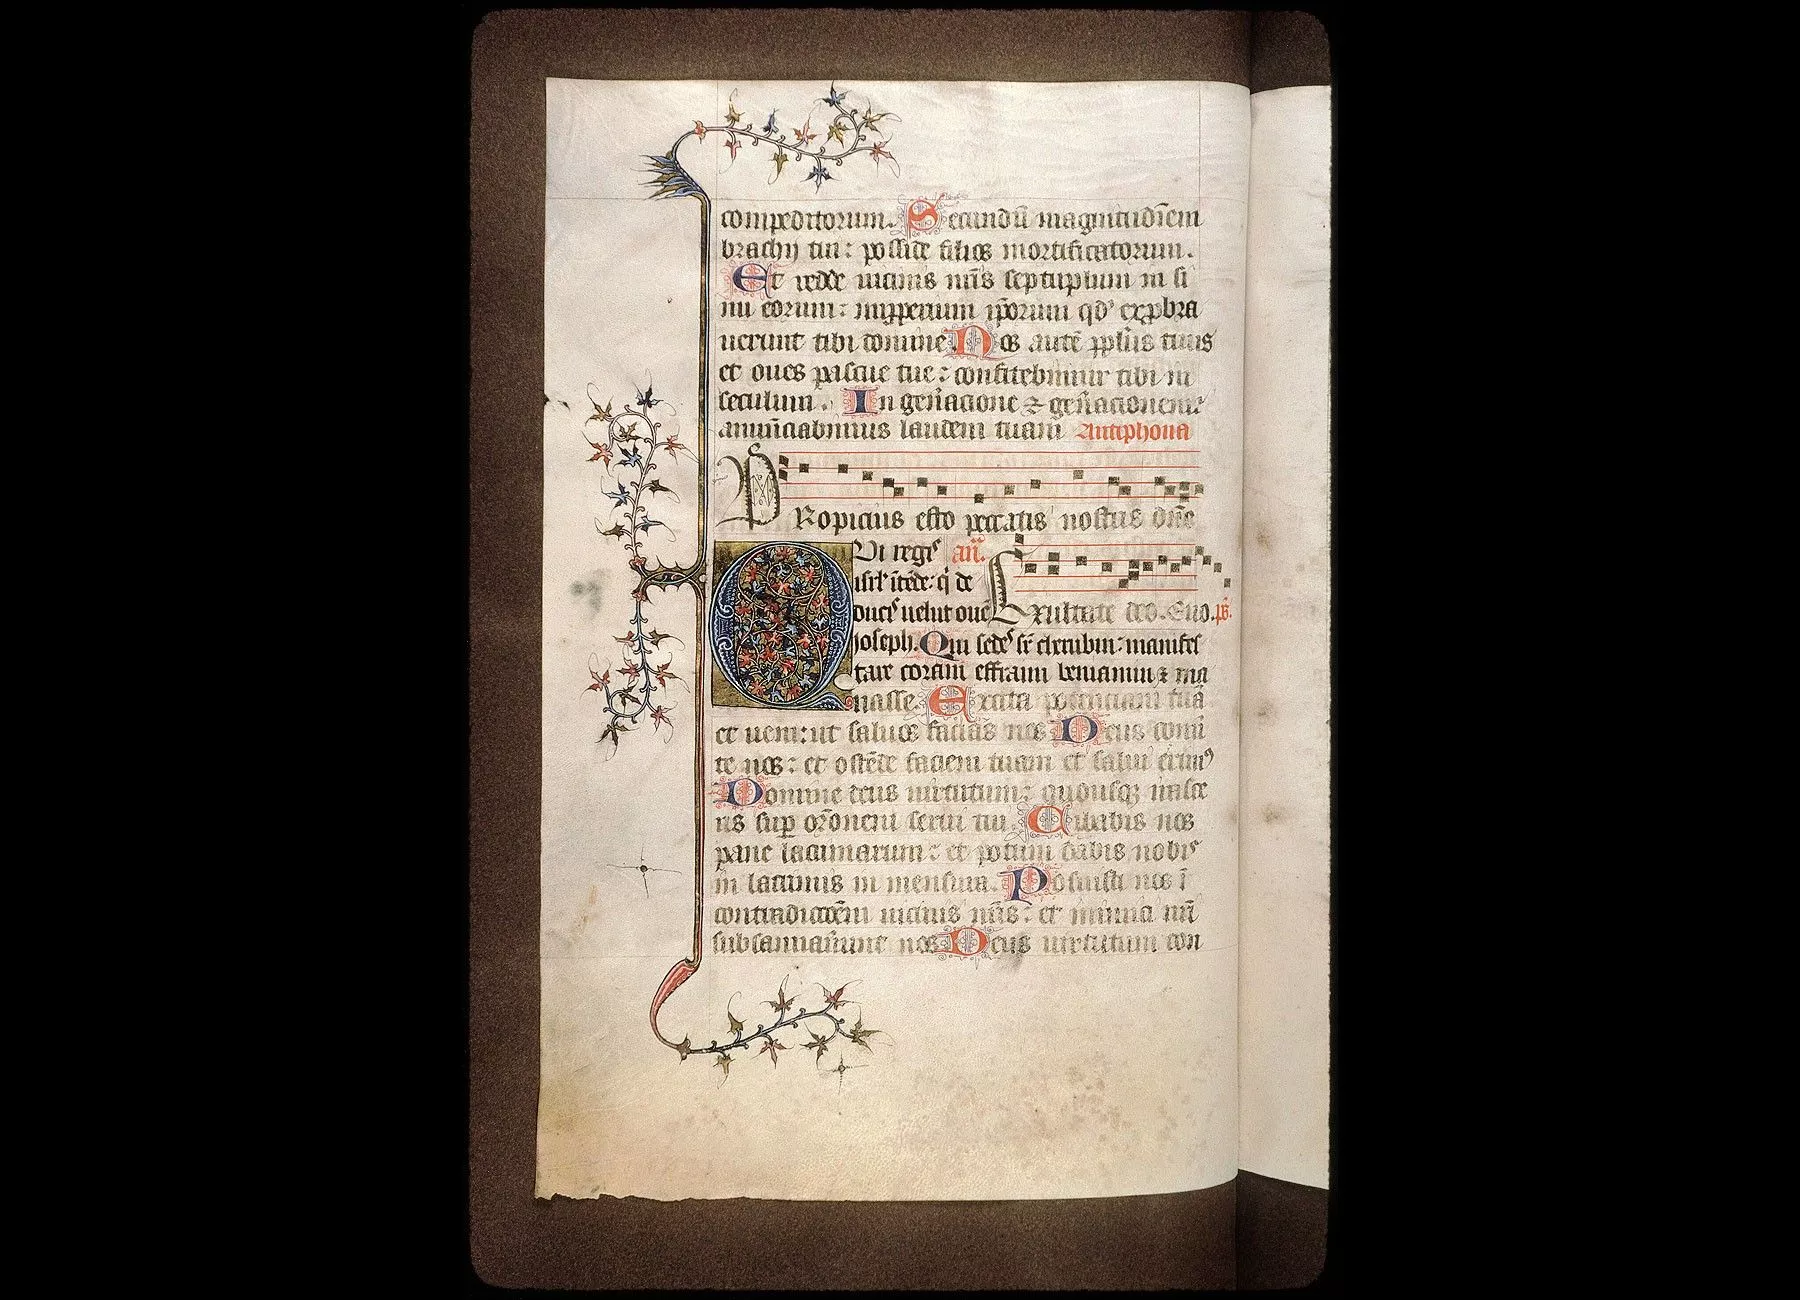 compeditorum. Secundū magnitudīem
brachij tui: posside filios mortificatorum.
Et redde uicinis nr̄is septuplum in si
nu eorum: improperium ip̄orum qd' exp̱bra
uerunt tibi domine Nos autē pp̄lus tuus
et oues pascue tue: confitebimur tibi in
seculum. In gen̄acione ⁊ gen̄acionem:
annūciabimus laudem tuam Antiphona
PRopicius esto peccatis nostris dn̄e
Qui regis an̄.
isrl' ītēde: q̄ de
ducis uelut ouē Exultate deo. Euo. ps̄.
ioseph. Qui sedes sr̄ cherubin: manifes
tare coram effraim beniamin ⁊ ma
nasse. Excita potenciam tuā
et ueni: ut saluos facias nos Deus conu̾
te nos: et ostēde faciem tuam et salui erimꝰ
Domine deus uirtutum: quousqꝫ irasce
ris sup̱ or̄onem serui tui. Cibabis nos
pane lacrimarum: et potum dabis nobis
in lacrimis in mensura. Posuisti nos ī
contradictōem uicinis nr̄is: et inimici nr̄i
subsannauerunt nos Deus uirtutum con